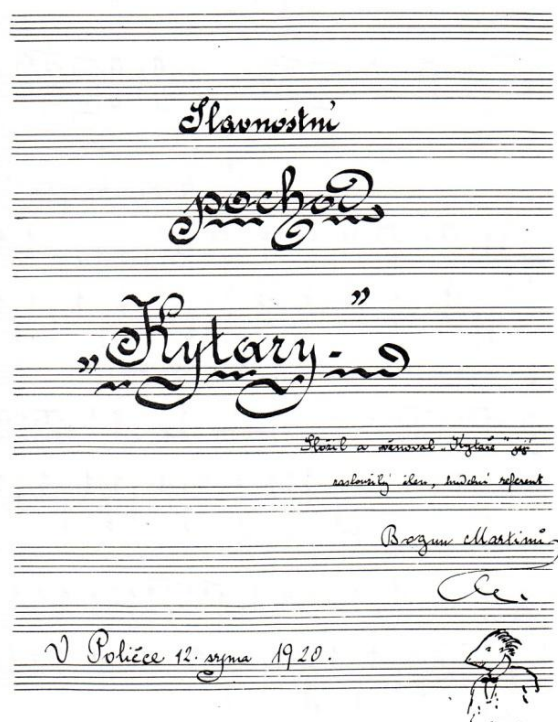 Slavnostní
pochod
„Kytary-”
Složil a věnoval „Kytaře" její
zasloužilý člen, hudební referent
Bogun Martinů
V Poličce 12. srpna 1920.